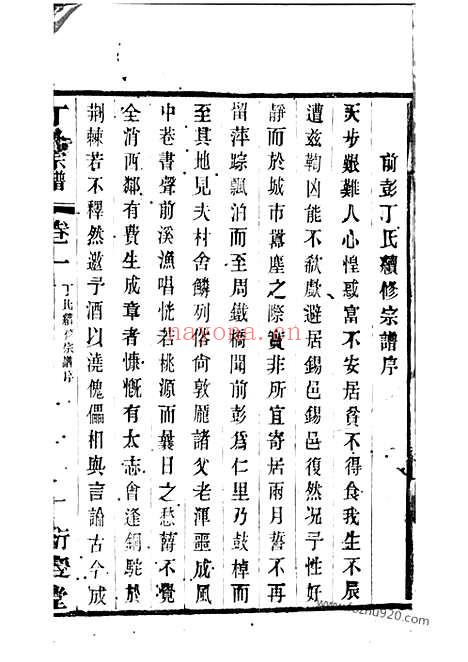 前彭丁氏續修宗譜序
天步艱難人心惶惑富不安居貧不得食我生不辰
遭兹鞠凶能不欷歔避居錫邑錫邑復然況予性好
靜而於城市囂塵之際實非所宜寄居兩月誓不再
留萍踪飄泊而至周鐵橋聞前彭爲仁里乃鼓棹而
至其地見夫村舍鱗列俗尙敦龐諸父老渾噩成風
中巷書聲前溪漁唱恍若桃源而曩日之愁蕳不覺
全消西鄰有費生成章者慷慨有太志會逢銅駝於
荆棘若不釋然邀予酒以澆傀儡相與言論古今成
丁氏宗譜
卷一
丁氏續修宗譜序
一
衍慶堂
nayona.cn
www.fozhu920.com